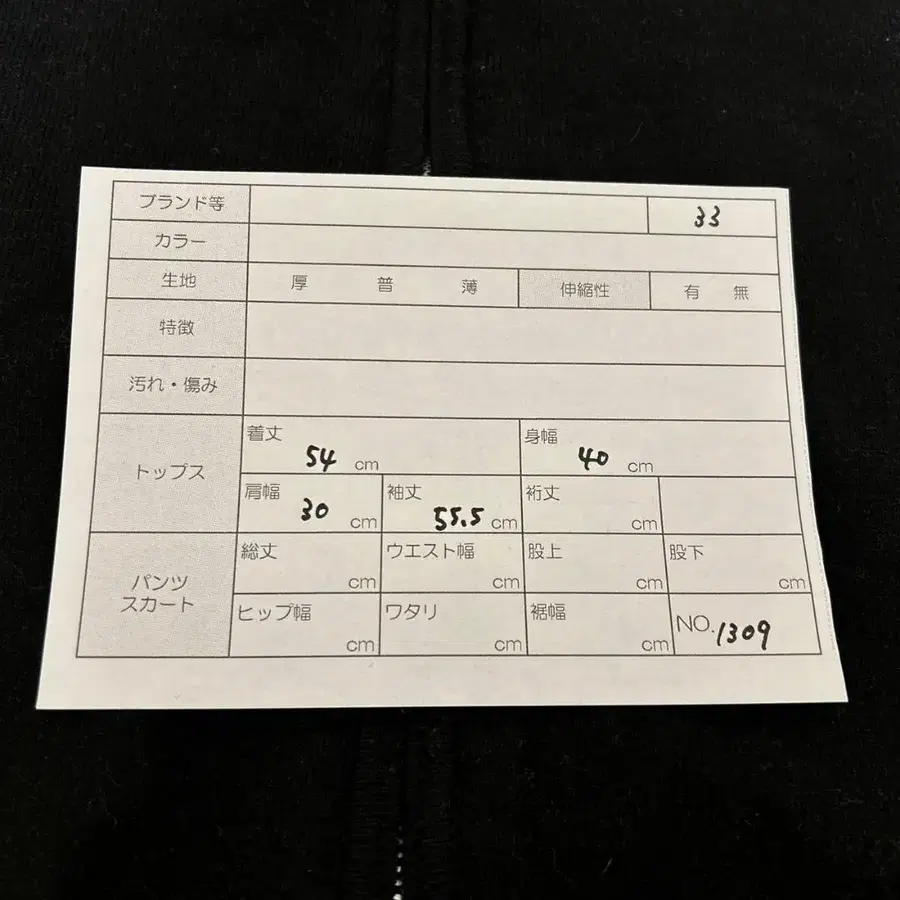 ブランド等 33
カラー
生地 厚 普 薄 伸縮性 有 無
特徴
汚れ・傷み
トップス
着丈 54 cm 身幅 40 cm
肩幅 30 cm 袖丈 55.5 cm 裄丈 cm
パンツ
スカート
総丈 cm ウエスト幅 cm 股上 cm 股下 cm
ヒップ幅 cm ワタリ cm 裾幅 cm NO. 1309